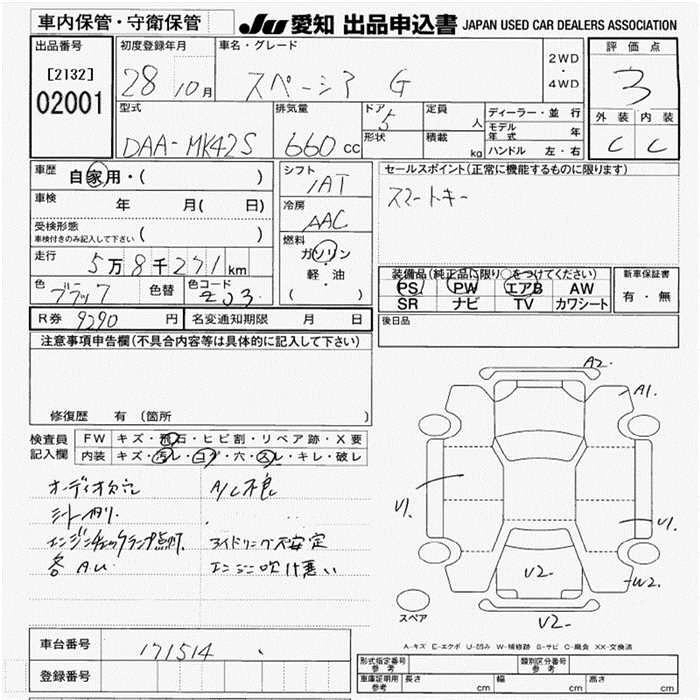 車内保管・守衛保管
JU 愛知 出品申込書 JAPAN USED CAR DEALERS ASSOCIATION
出品番号
[2132]
02001
初度登録年月
28 10月
車名・グレード
スペーシア G
2WD
・
4WD
評価点
3
外装 内装
C C
型式
DAA-MK42S
排気量
660 cc
ドア
5
形状
定員
人
積載
kg
ディーラー・並行
モデル年式 年
ハンドル 左・右
車歴
自家用・( )
車検 年 月( 日)
受検形態
車検付きのみ記入して下さい ( )
走行 5万8千271km
色 ブラック 色替 色コード ZJ3
シフト
IAT
冷房
AAC
燃料
ガソリン
軽・油
( )
セールスポイント(正常に機能するものに限ります)
スマートキー
装備品(純正品に限り○をつけてください)
PS PW エアB AW
SR ナビ TV カワシート
新車保証書
有・無
R券 9290 円 名変通知期限 月 日
後日品
注意事項申告欄(不具合内容等は具体的に記入して下さい)
修復歴 有 (箇所 )
検査員記入欄
FW キズ・飛石・ヒビ割・リペア跡・X要
内装 キズ・汚レ・コゲ・穴・スレ・キレ・破レ
オーディオ欠品 A/C不良
シートスレ
エンジンチェックランプ点灯 アイドリング不安定
各AU エンジン吹け悪い
A2
A1
U1
U1
V2
W2
V2
スペア
A-キズ E-エクボ U-凹み W-補修跡 S-サビ C-腐食 XX-交換済
車台番号 171514
登録番号
形式指定番号 参考
類別区分番号 参考
車庫証明用 参考 長さ cm 幅 cm 高さ cm